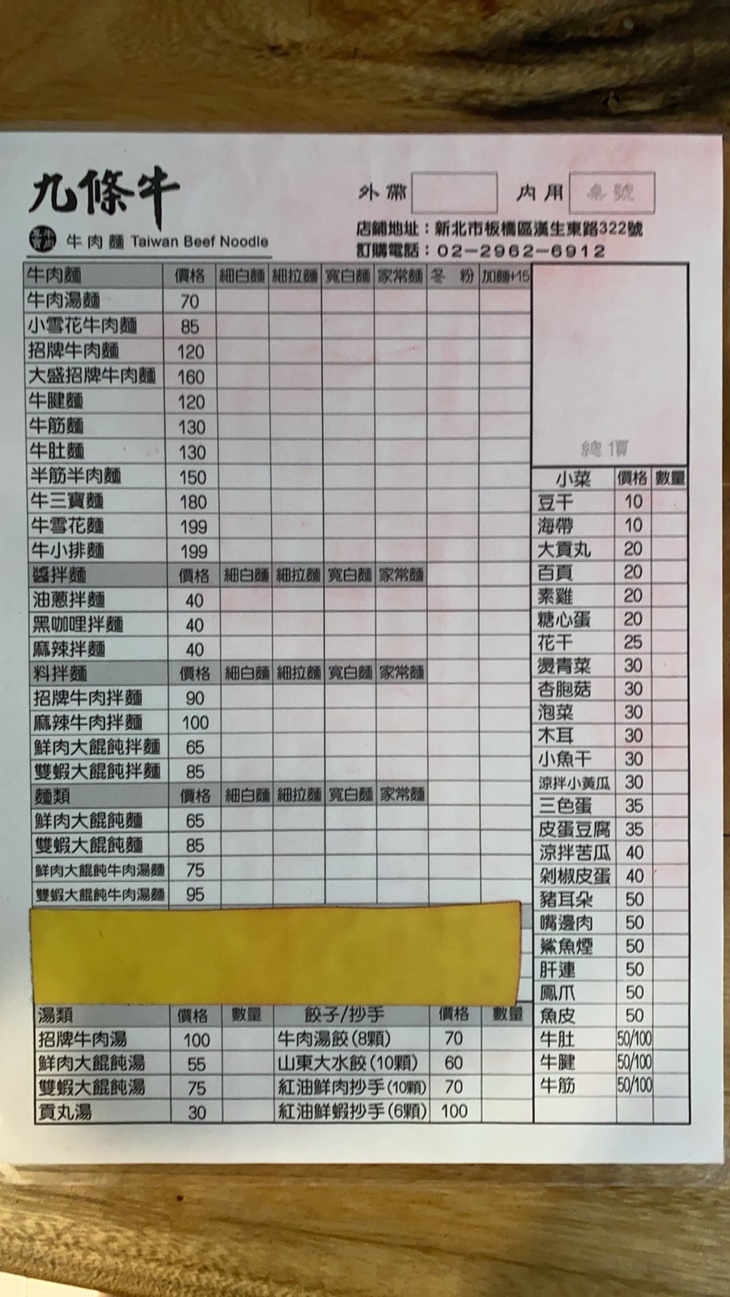 九條牛
牛肉麵 Taiwan Beef Noodle
外帶 內用 桌號
店鋪地址：新北市板橋區漢生東路322號
訂購電話：02-2962-6912
牛肉麵 價格 細白麵 細拉麵 寬白麵 家常麵 冬 粉 加麵+15
牛肉湯麵 70
小雪花牛肉麵 85
招牌牛肉麵 120
大盛招牌牛肉麵 160
牛腱麵 120
牛筋麵 130
牛肚麵 130
半筋半肉麵 150
牛三寶麵 180
牛雪花麵 199
牛小排麵 199
醬拌麵 價格 細白麵 細拉麵 寬白麵 家常麵
油蔥拌麵 40
黑咖哩拌麵 40
麻辣拌麵 40
料拌麵 價格 細白麵 細拉麵 寬白麵 家常麵
招牌牛肉拌麵 90
麻辣牛肉拌麵 100
鮮肉大餛飩拌麵 65
雙蝦大餛飩拌麵 85
麵類 價格 細白麵 細拉麵 寬白麵 家常麵
鮮肉大餛飩麵 65
雙蝦大餛飩麵 85
鮮肉大餛飩牛肉湯麵 75
雙蝦大餛飩牛肉湯麵 95
湯類 價格 數量 餃子/抄手 價格 數量
招牌牛肉湯 100 牛肉湯餃(8顆) 70
鮮肉大餛飩湯 55 山東大水餃(10顆) 60
雙蝦大餛飩湯 75 紅油鮮肉抄手(10顆) 70
貢丸湯 30 紅油鮮蝦抄手(6顆) 100
總價
小菜 價格 數量
豆干 10
海帶 10
大貢丸 20
百頁 20
素雞 20
糖心蛋 20
花干 25
燙青菜 30
杏胞菇 30
泡菜 30
木耳 30
小魚干 30
涼拌小黃瓜 30
三色蛋 35
皮蛋豆腐 35
涼拌苦瓜 40
剁椒皮蛋 40
豬耳朵 50
嘴邊肉 50
鯊魚煙 50
肝連 50
鳳爪 50
魚皮 50
牛肚 50/100
牛腱 50/100
牛筋 50/100